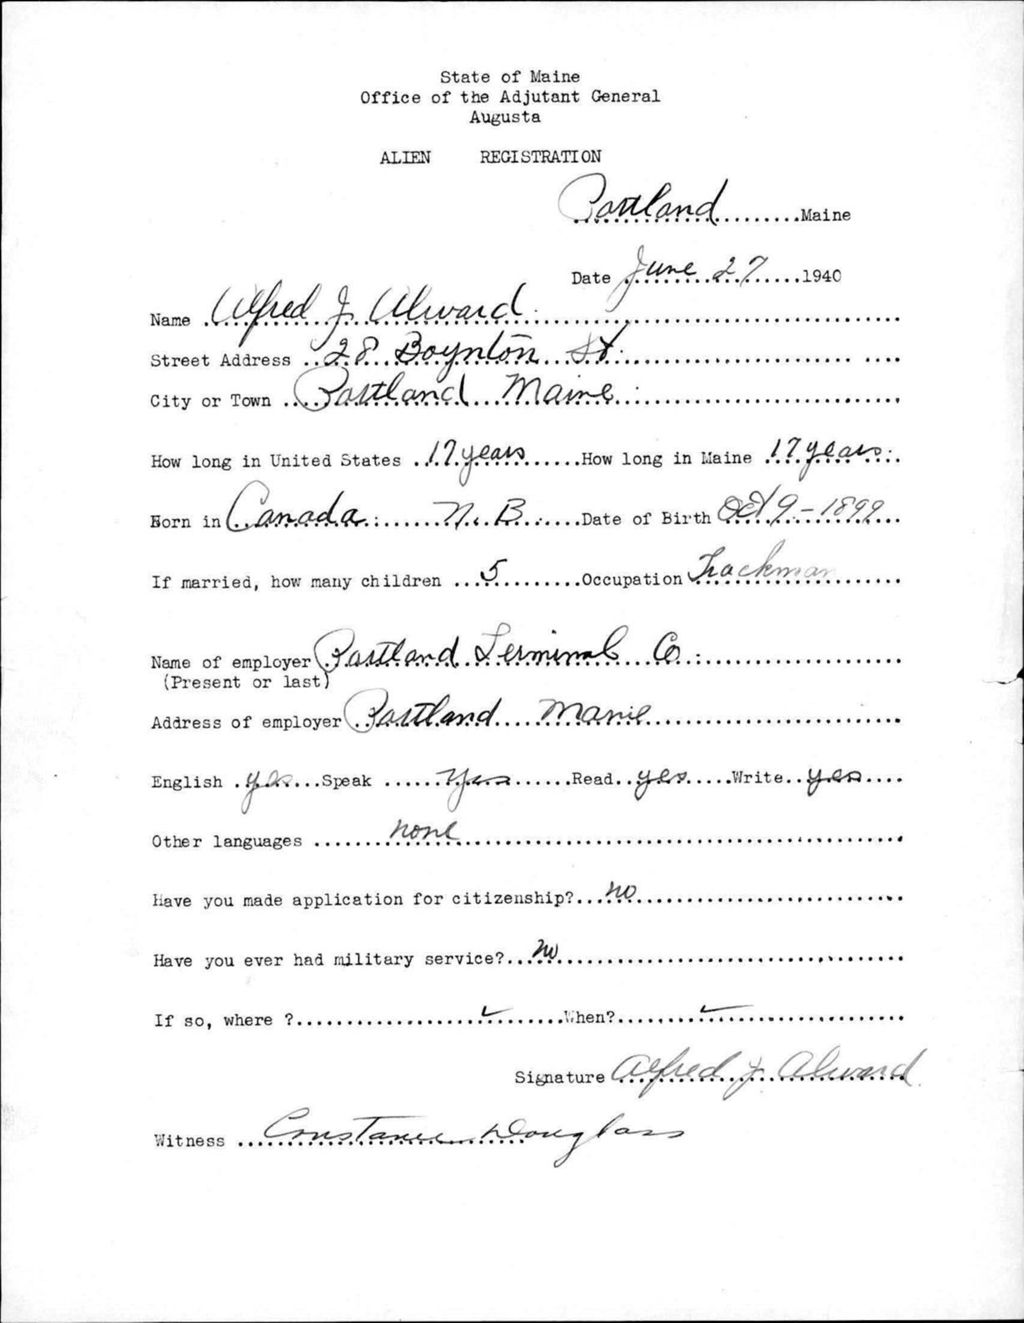 State of Maine
Office of the Adjutant General
Augusta
ALIEN REGISTRATION
Portland Maine
Date June 27 1940
Name Alfred J. Alward
Street Address 28 Boynton St.
City or Town Portland Maine
How long in United States 17 years How long in Maine 17 years
Born in Canada N. B. Date of Birth Oct 9 - 1899
If married, how many children 5 Occupation Trackman
Name of employer Portland Terminal Co
(Present or last)
Address of employer Portland Manie
English yes Speak Yes Read yes Write yes
Other languages none
Have you made application for citizenship? no
Have you ever had military service? no
If so, where ? ✓ When? ✓
Signature Alfred J. Alward
Witness Constance Douglass